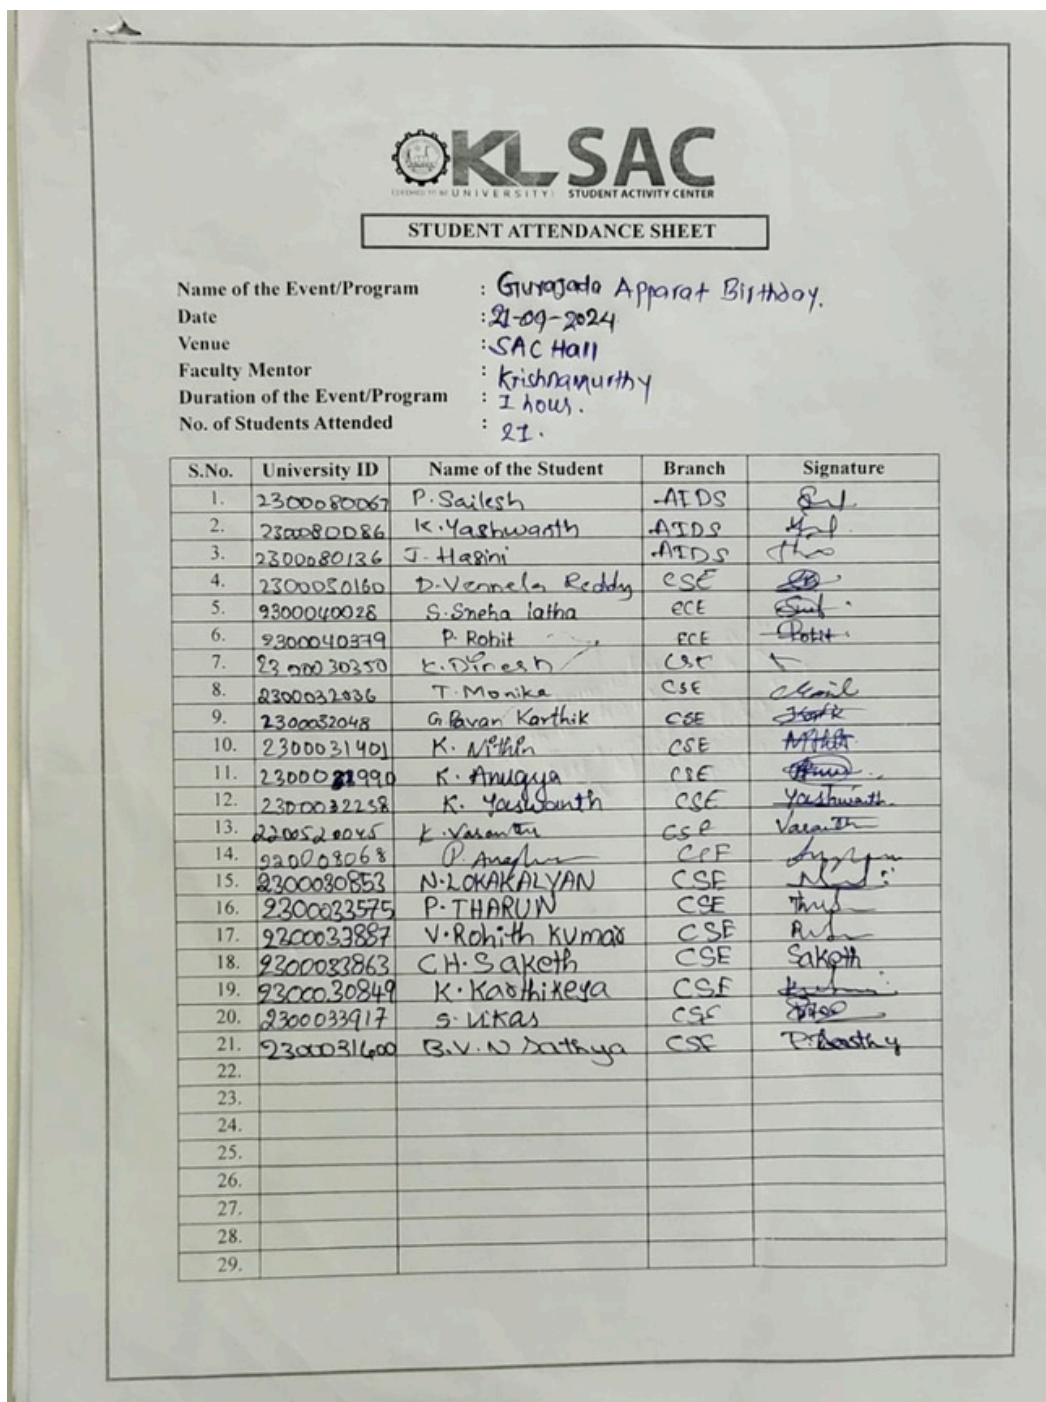 KL SAC
(DEEMED TO BE UNIVERSITY) STUDENT ACTIVITY CENTER
STUDENT ATTENDANCE SHEET
Name of the Event/Program : Gurajada Apparat Birthday.
Date : 21-09-2024
Venue : SAC Hall
Faculty Mentor : Krishnamurthy
Duration of the Event/Program : 1 hour.
No. of Students Attended : 21.
S.No. University ID Name of the Student Branch Signature
1. 2300080067 P. Sailesh AIDS
2. 2300080086 K. Yashwanth AIDS
3. 2300080136 J. Hasini AIDS
4. 2300050160 D. Vennela Reddy CSE
5. 2300040028 S. Sneha latha ECE
6. 2300040379 P. Rohit ECE Rohit
7. 2300030350 K. Dinesh CSE
8. 2300032036 T. Monika CSE
9. 2300032048 G. Pavan Karthik CSE
10. 2300031401 K. Nithin CSE
11. K. Anugya CSE
12. 2300032258 K. Yaswanth CSE Yashwanth
13. 2200520045 K. Vasanth CSE
14. CSE
15. 2300030853 N. LOKAKALYAN CSE
16. 2300033575 P. THARUN CSE
17. 2300033887 V. Rohith Kumar CSE
18. 2300033863 CH. Saketh CSE Saketh
19. 2300030849 K. Karthikeya CSE
20. 2300033917 S. Vikas CSE
21. 2300031600 B.V.N Sathya CSE
22.
23.
24.
25.
26.
27.
28.
29.